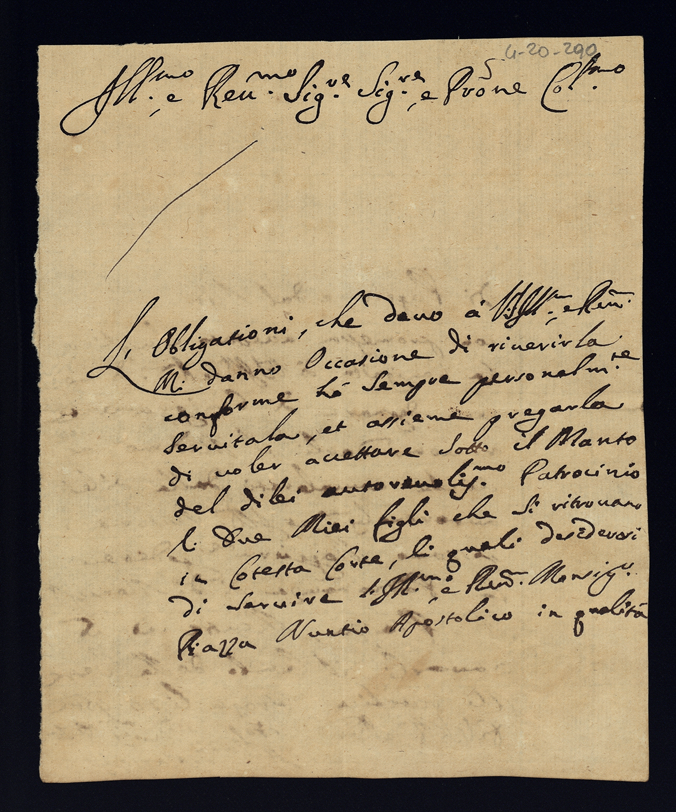 4-20-290
Ill.mo, e Reu.mo Sig.re Sig.re, e Prõne Col.mo
L' Obligationi, che deuo à V.S. Ill.ma, e Reũ.
Mi danno Occasione di riuerirla
conforme hò sempre personalm.te
Seruitala, et assieme pregarla
di uoler accettare sotto il Manto
del di lei autoreuoliss.mo Patrocinio
li Due Miei figli che si ritrouano
in Cotesta Corte, li quali desiderosi
di seruire l'Ill.mo, e Reũ. Monsig.r
Piazza Nuntio Apostolico in qualità